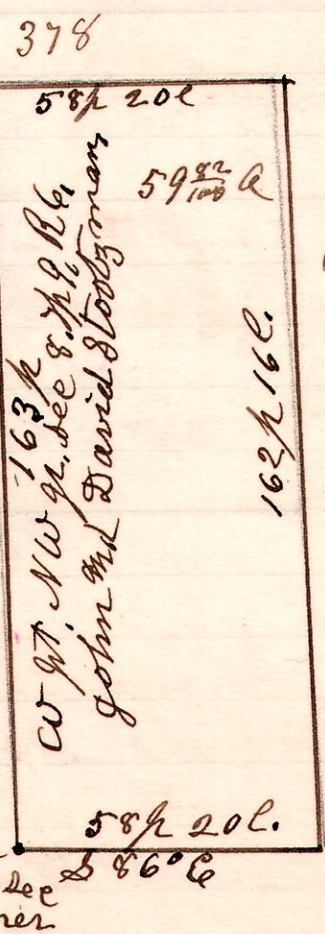 378
58p 20l
59 82/100 a
163p
W pt. N W qr. Sec 8. Tp 9, R 6,
John & David Stootzman
162p 16l.
58p 20l.
S 86° E
Sec
ner